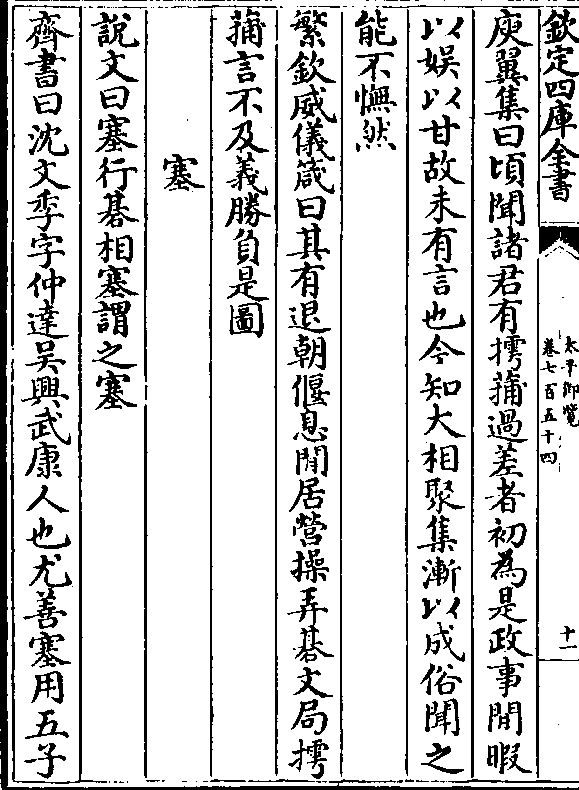 欽定四庫全書
太平御覽
卷七百五十四
十一
庾翼集曰頃聞諸君有摴蒱過差者初為是政事閒暇
以娛以甘故未有言也今知大相聚集漸以成俗聞之
能不憮然
繁欽威儀箴曰其有退朝偃息閒居營操弄棊文局摴
蒱言不及義勝負是圖
塞
說文曰塞行棊相塞謂之塞
齊書曰沈文季字仲達吳興武康人也尤善塞用五子